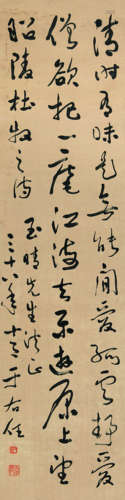 清時有味是無能閒愛孤雲靜愛
僧欲把一麾江海去樂遊原上望
昭陵杜牧之詩
玉晴先生正
三十八年十二于右任